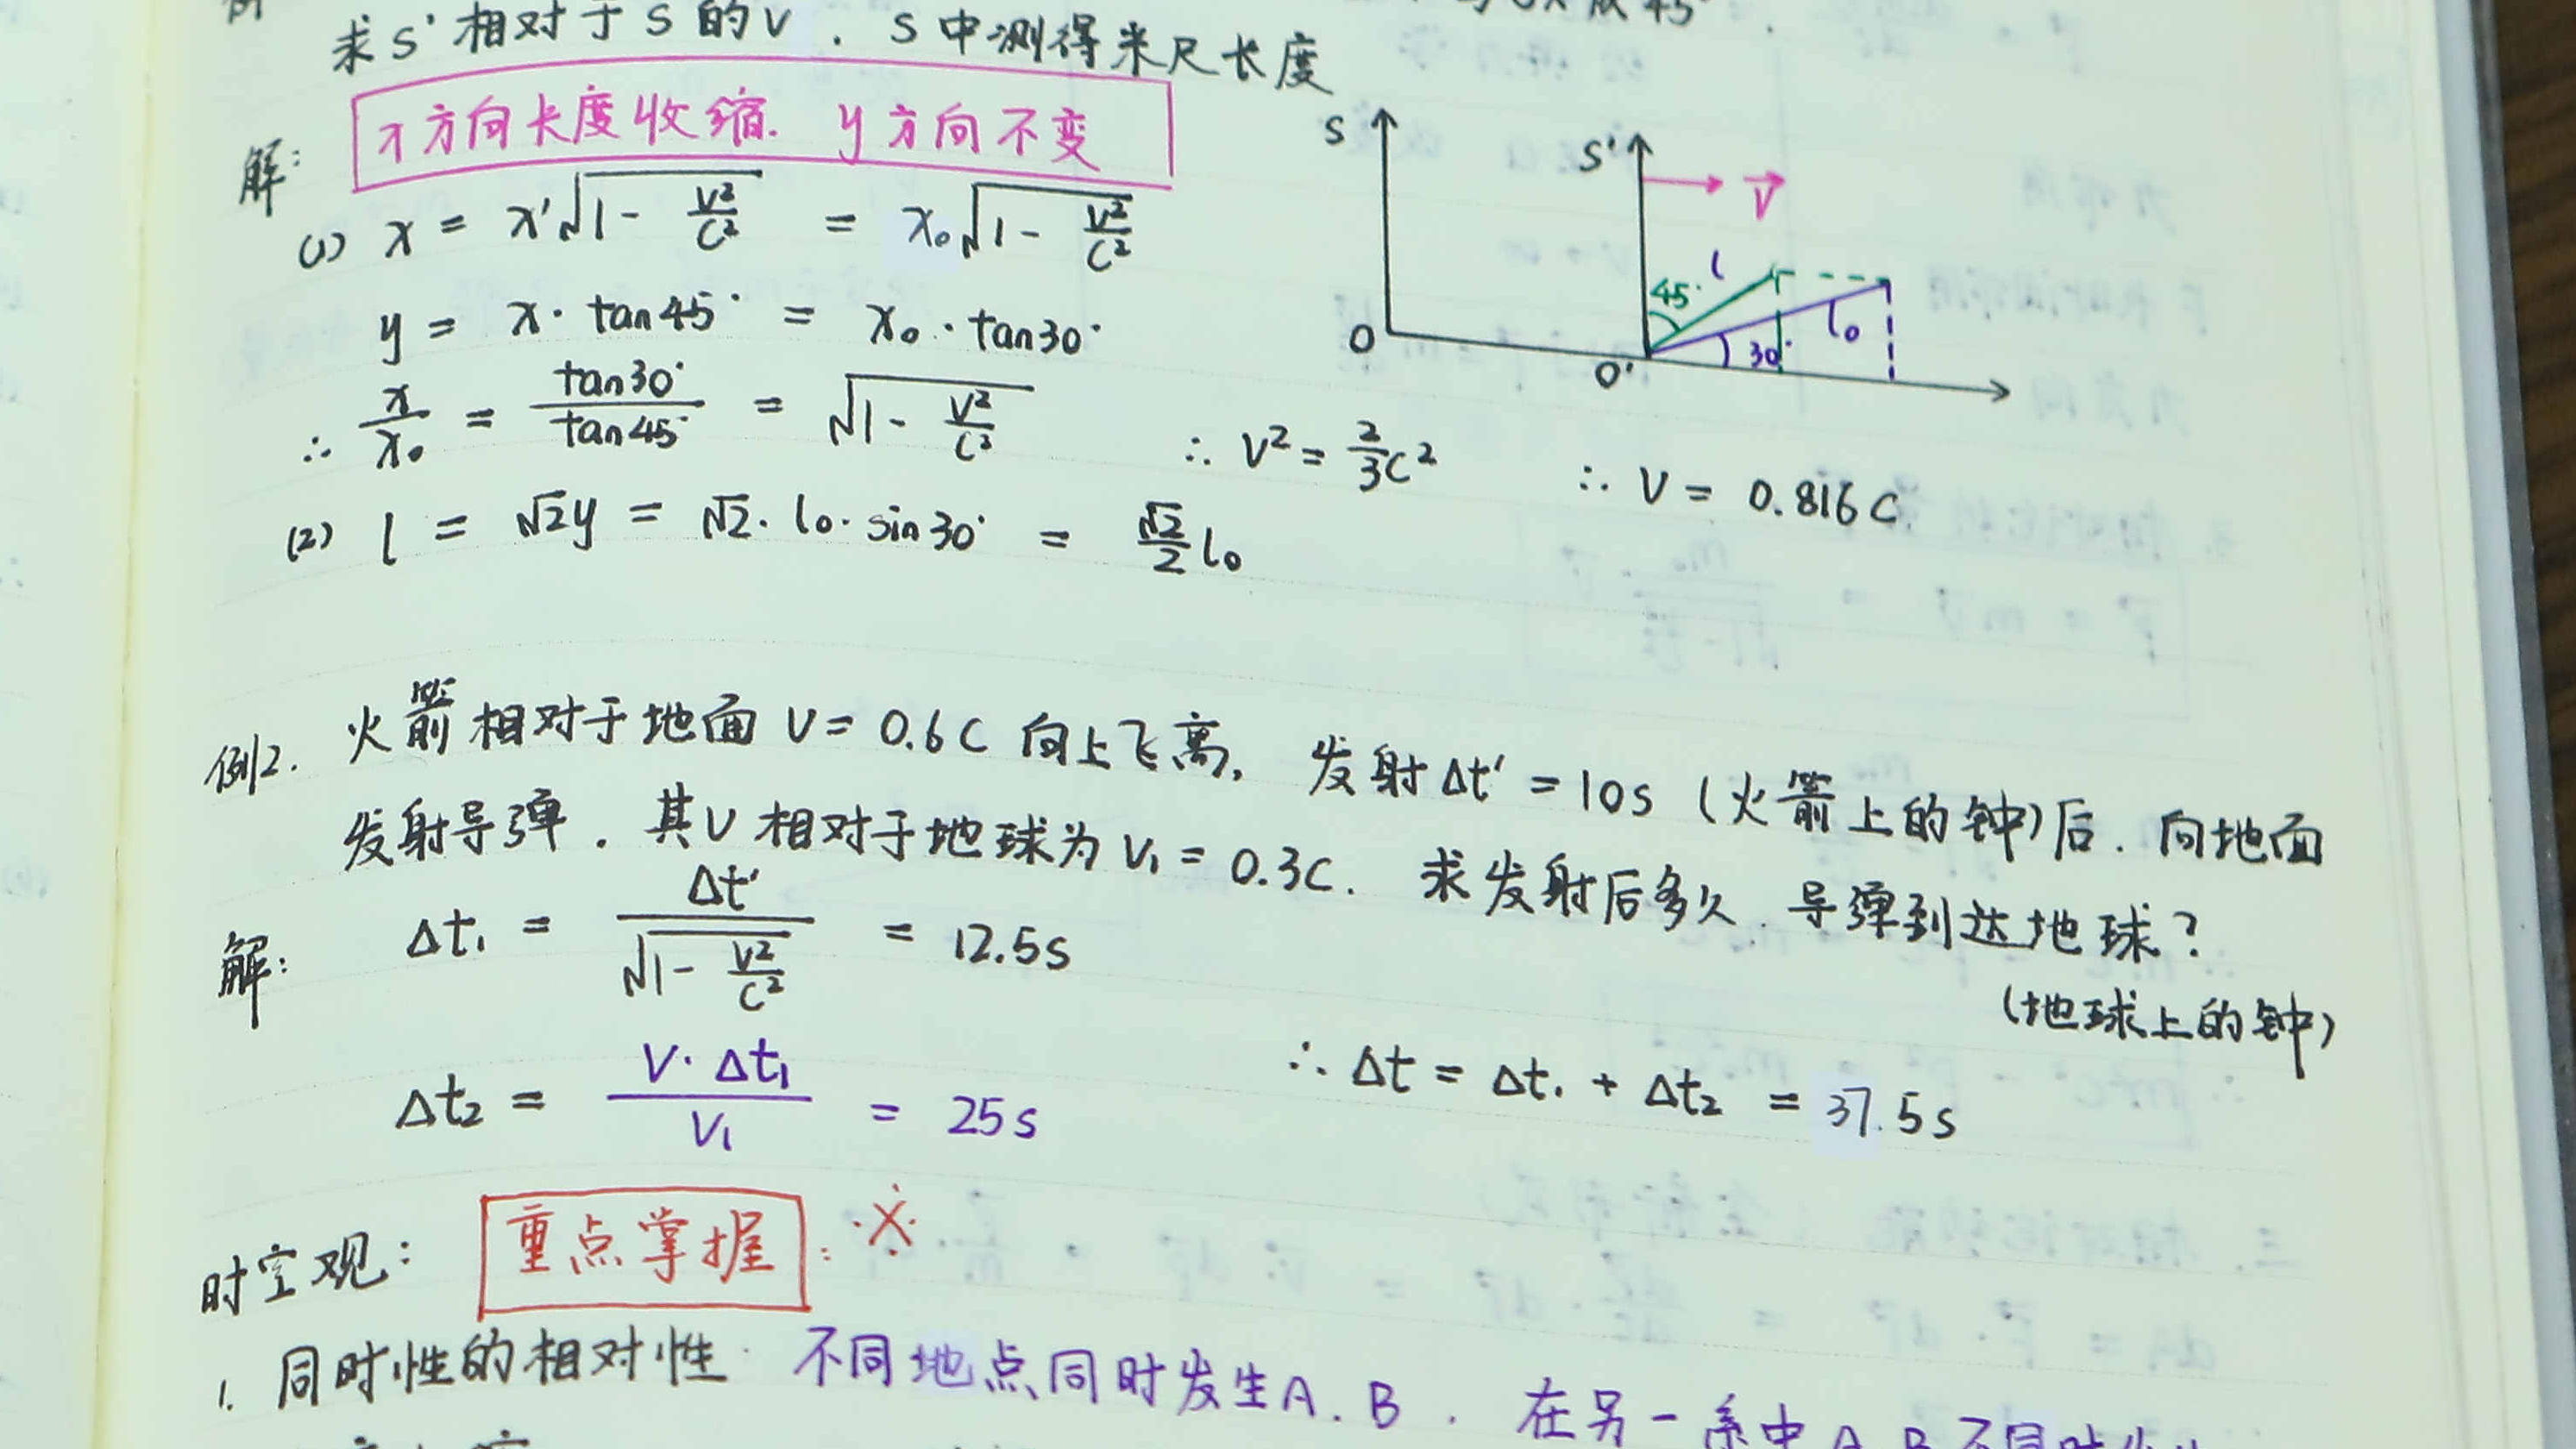 求S'相对于S的V. S中测得米尺长度
解: x方向长度收缩. y方向不变
(1) x = x'√(1 - V²/C²) = x₀√(1 - V²/C²)
y = x · tan45° = x₀ · tan30°
∴ x/x₀ = tan30°/tan45° = √(1 - V²/C²) ∴ V² = 2/3 C² ∴ V = 0.816C
(2) l = √2y = √2 · l₀ · sin30° = √2/2 l₀
S
S'
V⃗
45°
l
l₀
30°
O
O'
例2. 火箭相对于地面 V = 0.6C 向上飞离, 发射Δt' = 10s (火箭上的钟)后. 向地面
发射导弹. 其V相对于地球为V₁ = 0.3C. 求发射后多久 导弹到达地球?
(地球上的钟)
解: Δt₁ = Δt'/√(1 - V²/C²) = 12.5s
Δt₂ = V·Δt₁/V₁ = 25s ∴ Δt = Δt₁ + Δt₂ = 37.5s
时空观: 重点掌握 : ※
1. 同时性的相对性 不同地点同时发生A. B. 在另一系中A. B不同时